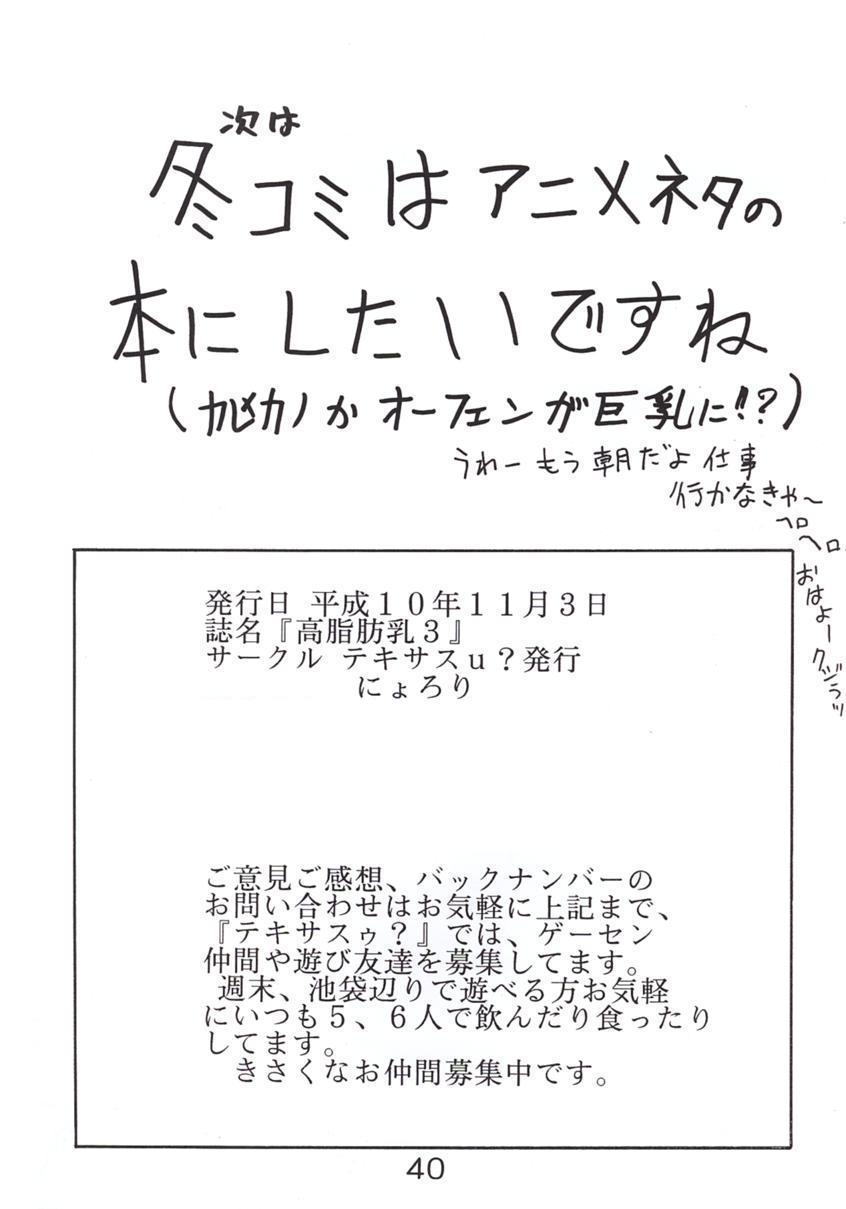 次は
冬コミはアニメネタの
本にしたいですね
（ か オーフェンが巨乳に!!?）
うわー もう朝だよ 仕事
行かなきゃ〜
ヘロ
ヘロ
おはよー グゾうッ
発行日 平成１０年１１月３日
誌名『高脂肪乳３』
サークル テキサスｕ？発行
にょろり
ご意見ご感想、バックナンバーの
お問い合わせはお気軽に上記まで、
『テキサスゥ？』では、ゲーセン
仲間や遊び友達を募集してます。
週末、池袋辺りで遊べる方お気軽
にいつも５、６人で飲んだり食ったり
してます。
きさくなお仲間募集中です。
40